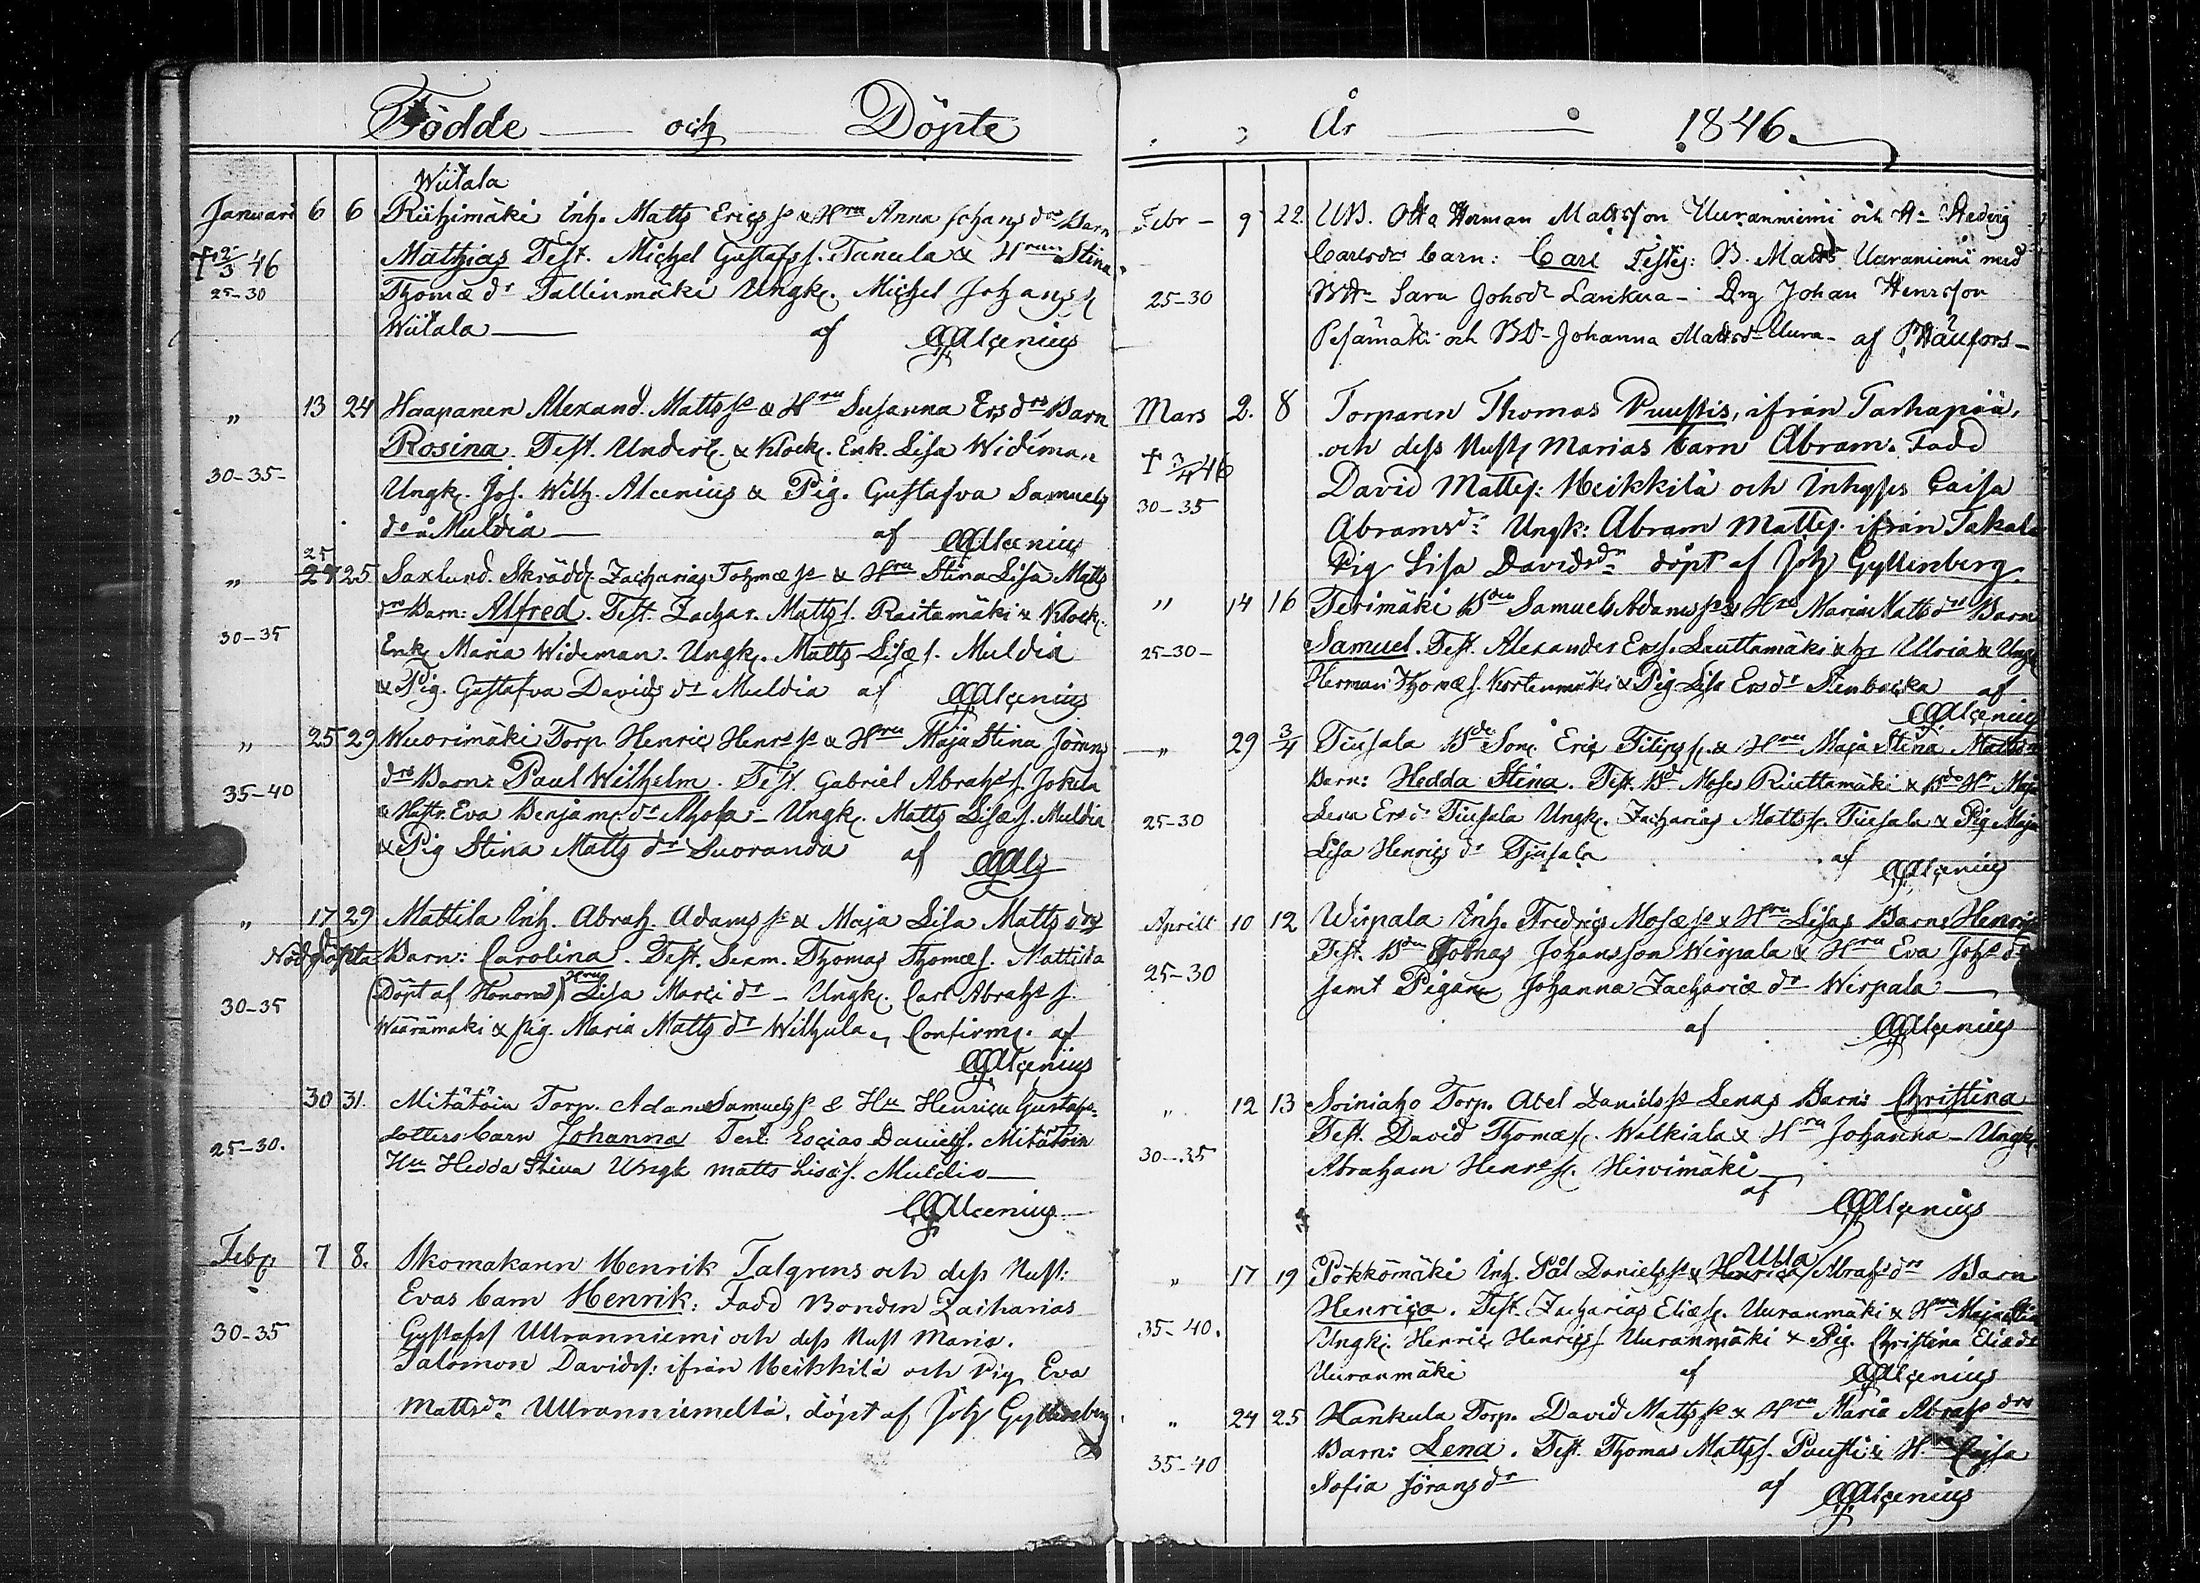 Födde och Döpte
Wiitala
Januari 6 6 Riihimäki Inh. Matts Erics s. & Hru Anna Johans drs Barn
† 2/3 46 Mathias Test. Michel Gustafs s. Tanula & Hrun Stina
25-30 Thomæ dr Tallinmäki Ungk. Michel Johans s.
Wiitala af Alcenius
" 13 24 Haapanen Alexand. Matts s. & Hru Susanna Ers drs Barn
Rosina. Test. & Klock. Enk. Lisa Wideman
30-35- Ungk. Jos. Wilh. Alcenius & Pig. Gustafva Samuels
dr Muldia af Alcenius
25
" 27 25 Saxlund Skrädd. Zacharias Tohmæ s. & Hru Stina Lisa Matts
drs Barn: Alfred. Test. Zachar. Matts s. Raitamäki & Klock.
30-35 Enk. Maria Wideman. Ungk. Matts Lisæ s. Muldia
& Pig. Gustafva Davids dr Muldia af Alcenius
" 25 29 Wuorimäki Torp. Henric Henrs s. & Hru Maja Stina Jörans
35-40 drs Barn: Paul Wilhelm. Test. Gabriel Abrahs s. Jokela
& Hustr. Eva Benjam. dr Ahola - Ungk. Matts Lisæ s. Muldia
& Pig Stina Matts dr Suoranda af
" 17 29 Mattila Inh. Abrah. Adams s. & Maja Lisa Matts drs
Nöddöpta Barn: Carolina. Test. Thomas Thomæ s. Mattila
(Döpt af Honom) Hru Lisa Marci dr - Ungk. Carl Abrahs s.
30-35 Waärämäki & pig. Maria Matts dr Wilhula, Confirm. af
Alcenius
30 31. Mitätöin Torp. Adam Samuels s. & Hu Henrica Gustafs-
dotters barn Johanna Test: Esaias Daniels s. Mitätöin
25-30. Hu Hedda Stina Ungk matts Lisæ s. Muldia
Alcenius
Febr 7 8. Skomakaren Henrik Talgrens och dess Hust:
Evas barn Henrik: Fadd Bonden Zacharias
30-35 Gustafs Uuranniemi och dess Hust Maria.
Salomon Davids s: ifrån Heikkilä och Pig Eva
Matts dr Uuranniemeltä, döpt af Joh Gyllenberg
År 1846.
Febr - 9 22. Otto Herman Matsson Uuranniemi och Hu Hedvig
Carlsdr barn: Carl Testes: B. Matts Uuraniemi med
25-30 Sara Johsdr Lankua - Drg Johan Henrsson
Pesämäki och Johanna Mattsdr Uura - af
Mars 2. 8 Torparen Thomas Puustis, ifrån Tarhapää,
† 3/4 46 och dess Hust Marias barn Abram. Fadd
30-35 David Mattes: Heikkilä och Inhyses Caisa
Abramsdr Ungk: Abram Mattes. ifrån Takala
Pig Lisa Davidsdr döpt af Joh Gyllenberg.
" 14 16 Terimäki Bdn Samuels Adams s. & Hru Maria Matts drs Barn
25-30- Samuel. Test. Alexander Ers s. Lauttamäki & Hu Ulrica & Ungk
Herman Thomæ s. Kortenmäki & Pig Lisa Ers dr Stenbacka af
Alcenius
" 29 3/4 Tiusala Bde Son. Eric Filips s. & Hru Maja Stina Mattsdrs
Barn: Hedda Stina. Test. Bd. Moses Riuttamäki & Bde Hr Maja
25-30 Lena Ers dr Tiusala Ungk. Zacharias Matts s. Tiusala & Pig Maja
Lisa Henrics dr Tiusala af Alcenius
Aprill 10 12 Wirpala Inh. Fredrics Mosæ s. & Hru Lisas Barn: Henric
25-30 Test. Bdn Johansson Wirpala & Hru Eva Johs dr
samt Pigan Johanna Zachariæ dr Wirpala
af Alcenius
" 12 13 Soiniaho Torp. Abel Daniels s. Lenas Barn: Christina
Test. David Thomæ s. Walkiala & Hru Johanna - Ungk.
30-35 Abraham Henrs s. Hirvimäki
af Alcenius
Ulla
" 17 19 Pökkömäki Inh. Pål Daniels s. & Henrica Abrahs drs Barn
Henrica. Test. Zacharias Eliæ s. Uuranmäki & Hru Maja Stina
35-40. Ungk. Henric Henrics s. Uuranmäki & Pig. Christina Eliædr
Uuranmäki af Alcenius
" 24 25 Hankula Torp. David Matts s. & Hru Maria Abrahs drs
35-40 Barn: Lena. Test. Thomas Matts s. Puusti & Hru Cajsa
Sofia Jörans dr af Alcenius